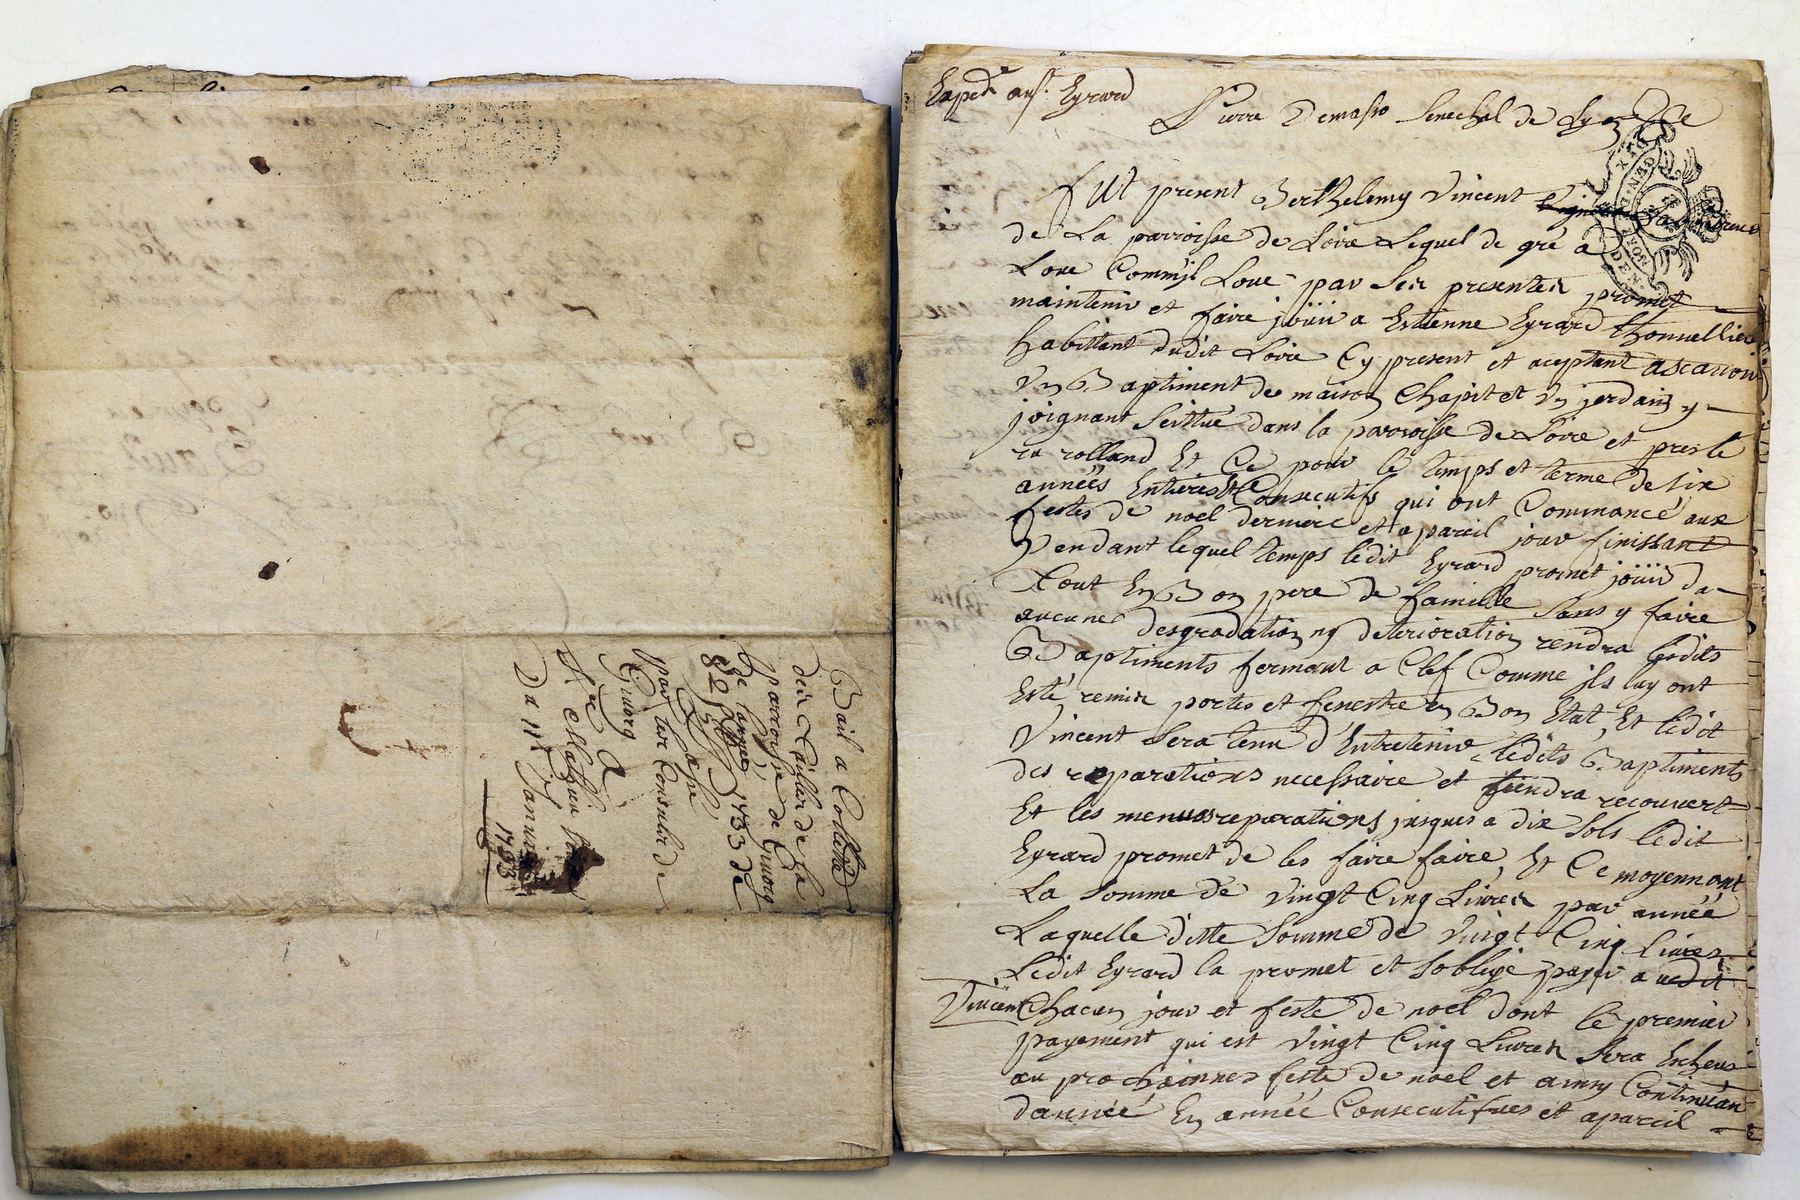 Bail a Colecte
deix tailler de la
parroisse de Quiorg
de l'année 1733 de
82
par les Consuls de
Quiorg
A
Me
Da 11e Janvier
1733
Exped. au st Eyrard
Pierre Demasso Senechal de Lyon
fut present Berthelemy Vincent
de La parroisse de Loire Lequel de gré a
Loue Comm'jl Loue par Ses presentes promet
maintenir et faire joüii a Estienne Eyrard thonnellier
habittant dudit Loire Cy present et aceptant
Un Baptiment de maison Chapit et Un jerdain y
joignant Scittue dans la parroisse de Loire et pres le
ru rolland Et Ce pour le temps et terme de six
années Entieres et Consecutifs qui ont Commancé aux
festes de noel derniere et a pareil jour finissant
Pendant lequel temps ledit Eyrard promet joüii da
tout En Bon pere de famille Sans y faire
aucune desgradation ny deterioration rendra lesdits
Baptiments fermant a Clef Comme jls luy ont
Esté remis portes et fenestre en Bon Etat, Et ledit
Vincent Sera tenu d'Entretenir lédits Baptiments
des reparations necessaire et tiendra recouvert
Et les menues reparations jusques a dix Sols ledit
Eyrard promet de les faire faire, Et Ce moyennant
La Somme de Vingt Cinq Livres par année
Laquelle ditte Somme de Vingt Cinq Livres
Ledit Eyrard la promet et s'oblige payer audit
Vincent Chacun jour et feste de noel dont le premier
payement qui est Vingt Cinq Livres Sera Escheus
au prochainnes feste de noel et ainsy Continuan
dannée En année Consecutifves et apareil